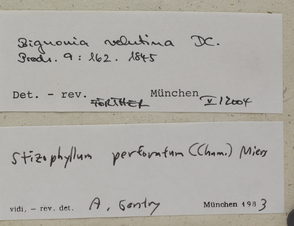 Bignonia velutina DC.
Prodr. 9: 162. 1845
Det. - rev. FÖRTHER München, V/2004
Stizophyllum perforatum (Cham.) Miers
vidi, - rev. det. A. Gentry München 1983